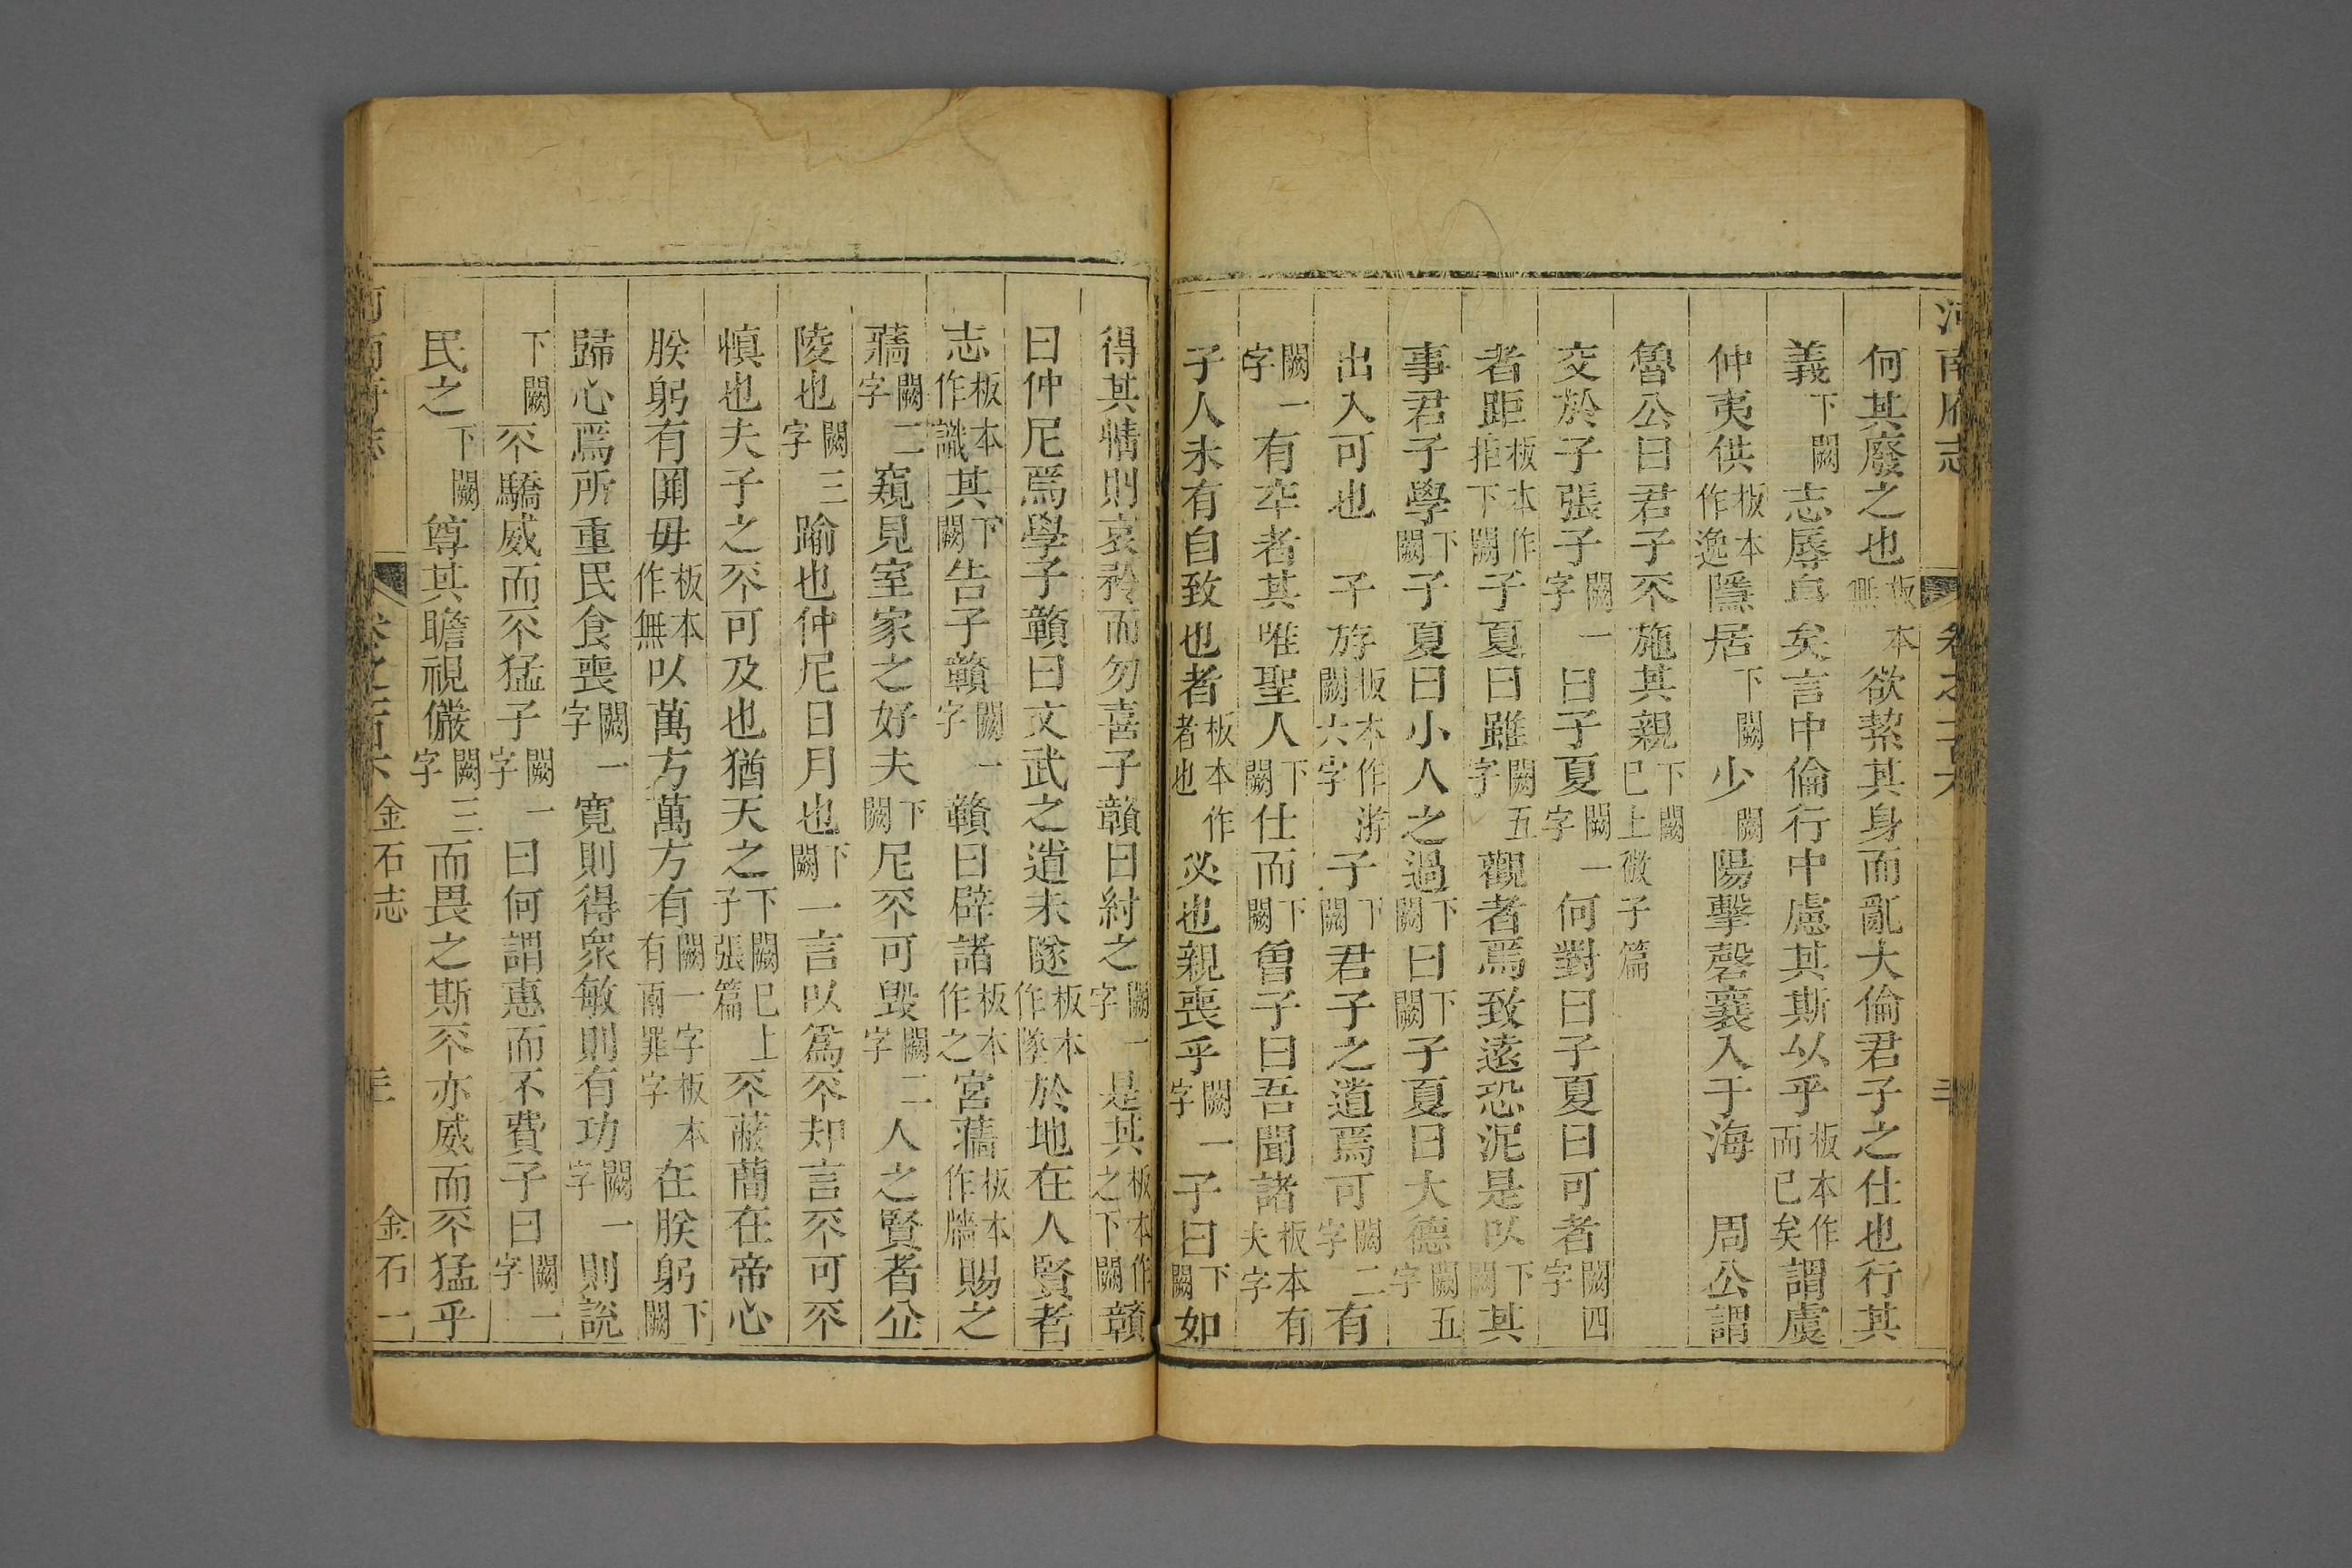 河南府志 卷之一百八 二十
何其廢之也板本無欲絜其身而亂大倫君子之仕也行其
義下闕志辱身矣言中倫行中慮其斯以乎板本作而已矣謂虞
仲夷佚板本作逸隱居下闕少闕陽擊磬襄入于海 周公謂
魯公曰君子不施其親下闕已上微子篇
交於子張子闕一字曰子夏闕一字何對曰子夏曰可者闕四字
者距板本作拒下闕子夏曰雖闕五字觀者焉致遠恐泥是以下闕其
事君子學下闕子夏曰小人之過下闕曰下闕子夏曰大德闕五字
出入可也 子斿板本作游闕六字子下闕君子之道焉可闕二字有
闕一字有卒者其唯聖人下闕仕而下闕曾子曰吾聞諸板本有夫字
子人未有自致也者板本作者也必也親喪乎闕一字子曰下闕如
得其情則哀矜而勿喜子贛曰紂之闕一字是其板本作之下闕贛
曰仲尼焉學子贛曰文武之道未隧板本作墜於地在人賢者
志板本作識其下闕告子贛闕一字贛曰辟諸板本作之宮蘠板本作牆賜之
蘠闕二字窺見室家之好夫下闕尼不可毀闕二字人之賢者㐀
陵也闕三字踰也仲尼日月也下闕一言以為不知言不可不
慎也夫子之不可及也猶天之下闕已上子張篇不蔽蕑在帝心
朕躬有罪毋板本作無以萬方萬方有闕一字板本有兩罪字在朕躬下闕
歸心焉所重民食喪闕一字寬則得眾敏則有功闕一字則說
下闕不驕威而不猛子闕一字曰何謂惠而不費子曰闕一字
民之下闕尊其瞻視儼闕三字而畏之斯不亦威而不猛乎
金石志 金石一